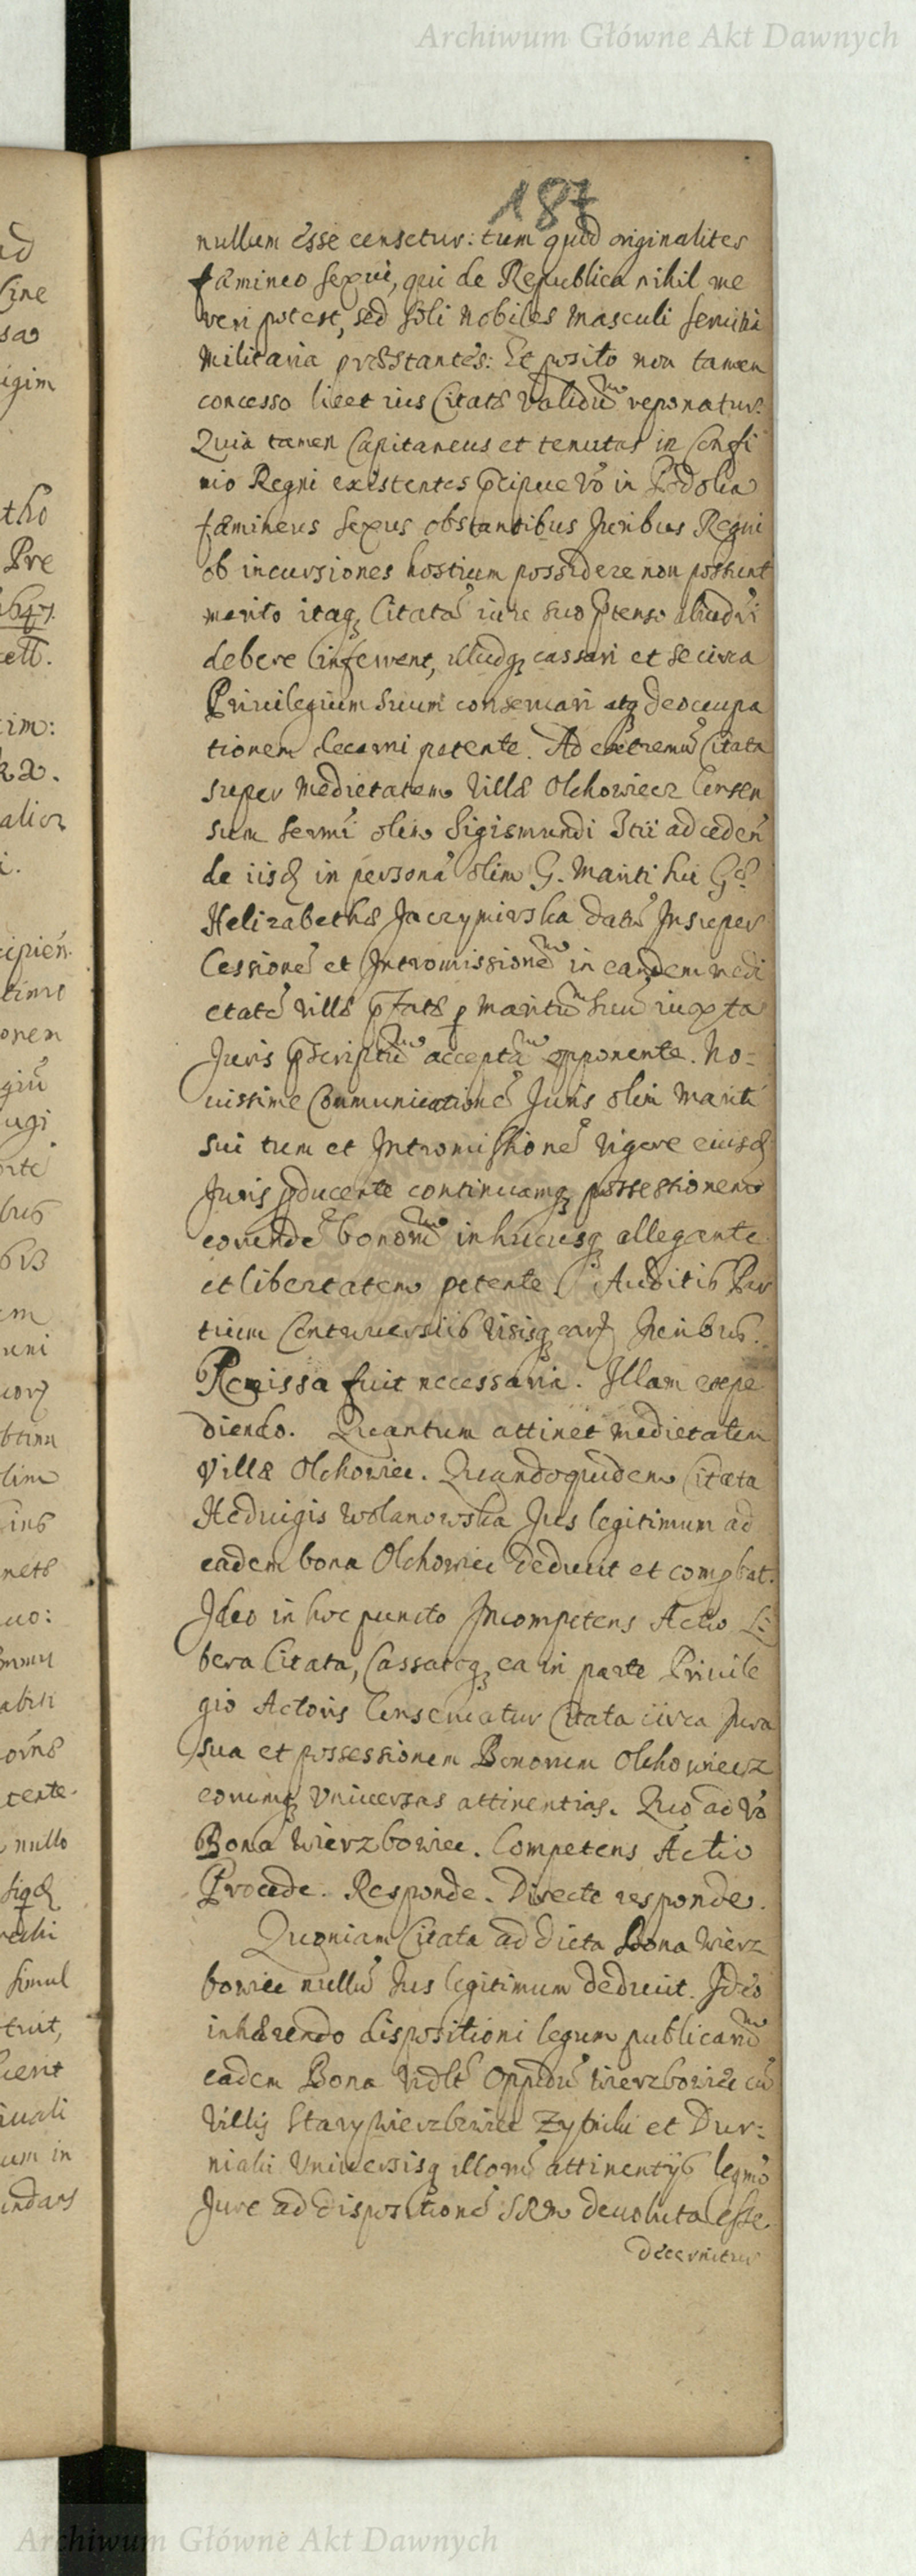 Archiwum Główne Akt Dawnych
187
nullum esse censetur: tum quod originaliter
fæmineo sexui, qui de Republica nihil me
reri potest, sed soli Nobiles Masculi servitia
Militaria præstantes: Et posito non tamen
concesso licet ius Citatæ validum reponatur.
Quia tamen Capitaneus et tenutas in Confi
nio Regni existentes pcipue vo in Podolia
fæmineus sexus obstantibus Juribus Regni
ob incursiones hostium possidere non possunt
merito itaq Citata iure suo ptenso
debere inferrent, illudq cassari et se circa
Priuilegium suum conseruari atq deoccupa
tionem decerni petente. Ad extremu Citata
super Medietatem Villæ Olchowiecz Consen
sum Sermi olim Sigismundi 3tii ad ceden
de iisd in persona olim G. Mariti sui Gæ
Helizabethæ Jaczymirska datu Insuper
Cessione et Intromissione in eandem medi
etate villæ pfatæ p maritu suu iuxta
Juris pscriptu accepta opponente. No=
uissime Communicatione Juris olim Mariti
sui tum et Intromissione vigore eiusd
Juris pducente continuamq possessionem
eorunde bonoru in hucusq allegante
et libertatem petente. Auditis Par
tium Controuersiis visisq earu Juribus.
Remissa fuit necessaria. Illam expe
diendo. Quantum attinet medietatem
Villæ Olchowiec. Quandoquidem Citata
Heduigis Wolanowska Jus legitimum ad
eadem bona Olchowiec deduxit et compbat.
Ideo in hoc puncto Incompetens Actio Li=
bera Citata, Cassatoq ea in parte Priuile
gio Actoris Conseruatur Citata circa Jura
sua et possessionem Bonorum Olchowiecz
eorumq Vniuersas attinentias. Quo ad vo
Bona Wierzbowiec. Competens Actio
Procede. Responde. Directe responde.
Quoniam Citata ad dicta Bona Wierz
bowiec nullu Jus legitimum deduxit. Ideo
inhærendo dispositioni legum publicaru
eadem Bona vidlt Oppidu Wierzbowiec cu
Villis Stary Wierzbowiec Zybuki et Dur=
niaki Vniuersisq illoru attinentijs legmo
Jure ad dispositione SRM deuoluta esse
decernitur
Archiwum Główne Akt Dawnych